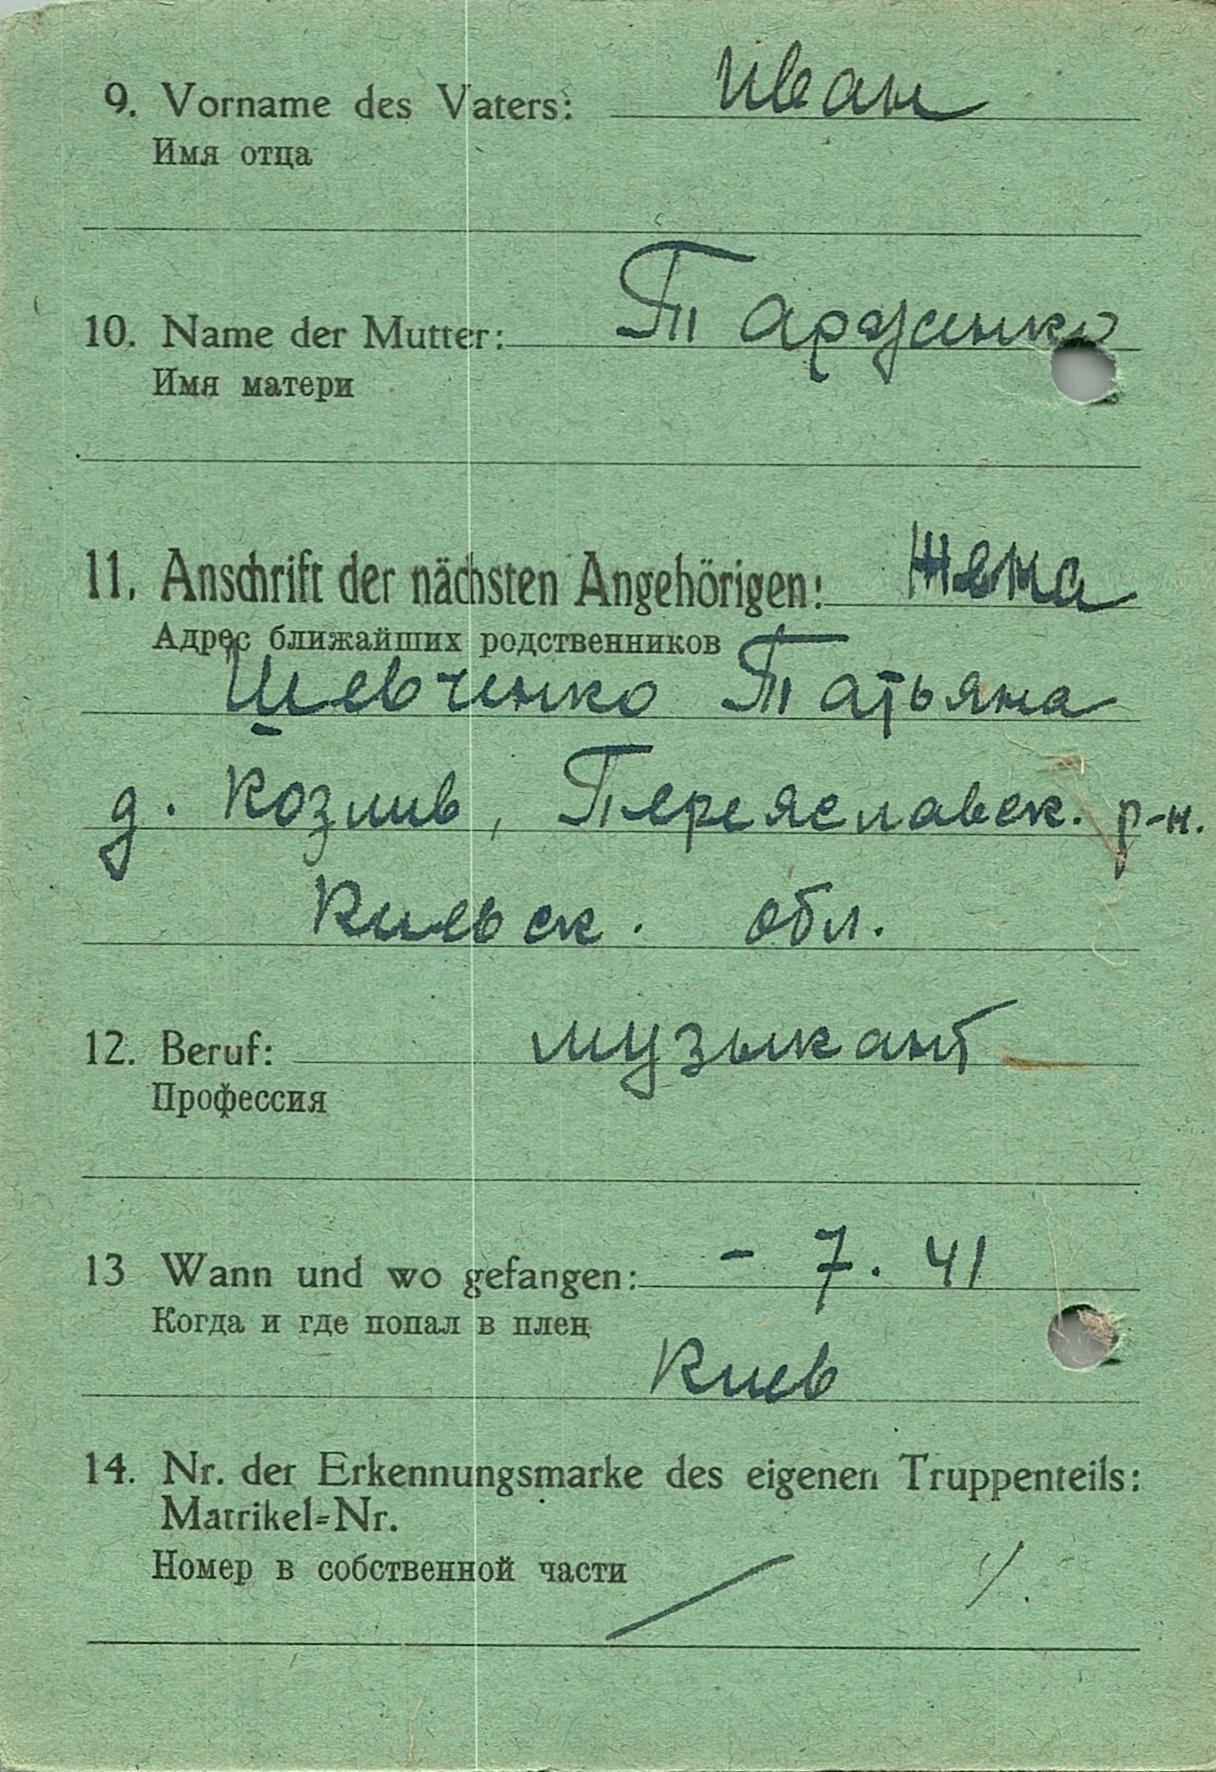 9. Vorname des Vaters: Иван
Имя отца
10. Name der Mutter:
Имя матери
11. Anschrift der nächsten Angehörigen: Жена
Адрес ближайших родственников
Шевченко Татьяна
д. Козлив, Переяславск. р-н.
Киевск. обл.
12. Beruf: музыкант
Профессия
13 Wann und wo gefangen: - 7. 41
Когда и где попал в плен
Киев
14. Nr. der Erkennungsmarke des eigenen Truppenteils:
Matrikel=Nr.
Номер в собственной части